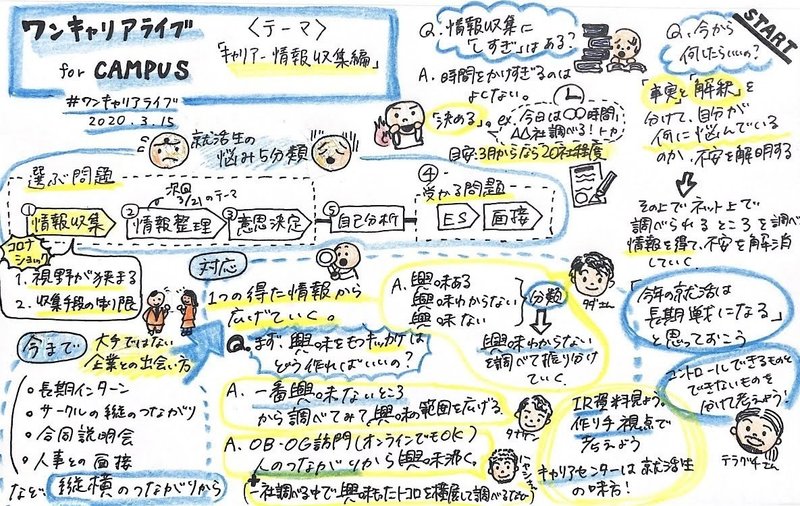 ワンキャリアライブ
for CAMPUS
#ワンキャリアライブ
2020.3.15
〈テーマ〉
「キャリアー情報収集編」
Q.情報収集に
「しすぎ」はある?
A.時間をかけすぎるのは
よくない。
「決める」。ex.今日は〇〇時間、
△△社調べる!トカ
目安:3月からなら20社程度
START
Q.今から
何したらいいの?
「事実」と「解釈」を
分けて、自分が
何に悩んでいる
のか、不安を解明する
その上でネット上で
調べられるところを調べ
情報を得て、不安を解消
していく。
就活生の
悩み5分類
選ぶ問題
次回
3/21のテーマ
①情報収集
②情報整理
③意思決定
⑤自己分析
④
受かる問題
ES
面接
コロナ
ショック
1.視野が狭まる
2.収集手段の制限
今まで
大手ではない
企業との出会い方
・長期インターン
・サークルの縦のつながり
・合同説明会
・人事との面接
など 縦横のつながりから
対応
1つの得た情報から
広げていく。
Q.まず、興味をもつきっかけは
どう作ればいいの?
A.一番興味ないところ
から調べてみて興味の範囲を広げる
A.OB・OG訪問(オンラインでもOK)
人のつながりから興味沸く。
+
(一社調べる中で興味もたトコロを横展して調べるなど)
A.興味ある
興味わからない
興味ない
分類
興味わからない
を調べて振り分け
ていく。
タダさん
「今年の就活は
長期戦になる」
と思っておこう
コントロールできるものと
できないものを
分けて考えよう!
テラグチさん
IR資料見よう。
作り手視点で
考えよう
キャリアセンターは就活生
の味方!